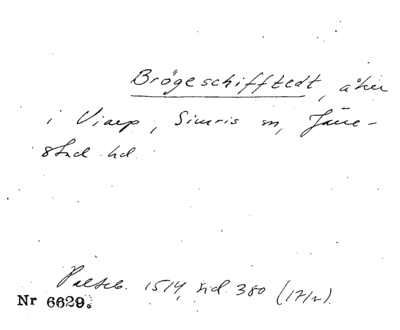 Brögeschifftedt, åker
i Viarp, Simris sn, Järre-
stad hd.
Palteb. 1514, sid 380 (17/2).
Nr 6629.